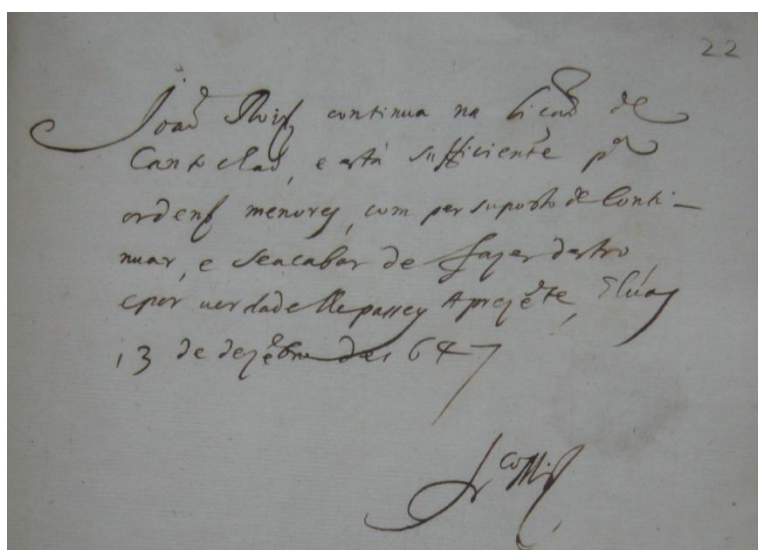 22
Joaõ Roiz continua na licaõ de
Canto chaõ, e está sufficiente pª
ordens menores, com persuposto de Conti-
nuar, e se acabar de fazer destro,
e por uerdade lhe passey a prezẽte, Eluas
13 de dezẽbro de 1647
Frco Miz